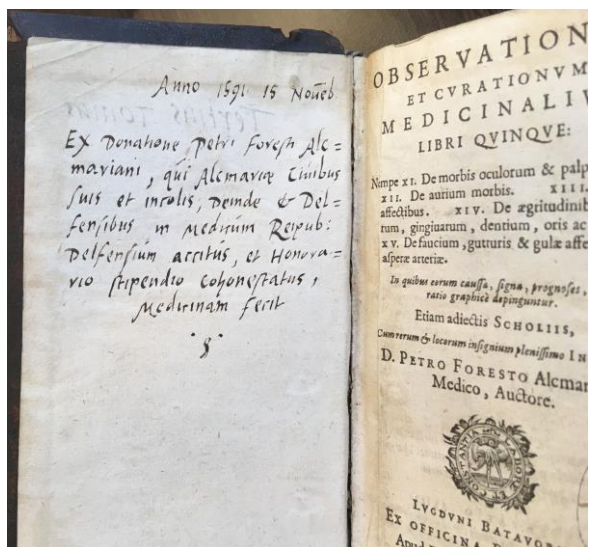 Anno 1591 15 Novēb.
Ex Donatione Petri Foresti Alc=
mariani, qui Alcmariæ Civibus
suis et incolis, Deinde & Del=
fensibus in Medicum Reipub:
Delfensium accitus, et Honora=
rio stipendio cohonestatus,
Medicinam fecit
OBSERVATION
ET CVRATIONVM
MEDICINALIV
LIBRI QVINQVE:
Nempe XI. De morbis oculorum & palp
XII. De aurium morbis. XIII.
affectibus. XIV. De ægritudinib
rum, gingiuarum, dentium, oris ac
XV. De faucium, gutturis & gulæ affe
asperæ arteriæ.
In quibus eorum caussæ, signa, prognoses,
ratio graphicè depinguntur.
Etiam adiectis SCHOLIIS,
Cum rerum & locorum insignium plenissimo IN
D. PETRO FORESTO Alcmar
Medico, Auctore.
LVGDVNI BATAVOR
EX OFFICINA
Apud